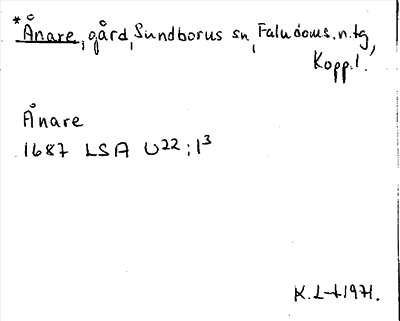 *Ånare, gård, Sundborns sn, Falu doms. n. tg,
Kopp. l.
Ånare
1687 LSA U22:1³
K. L-t 1971.